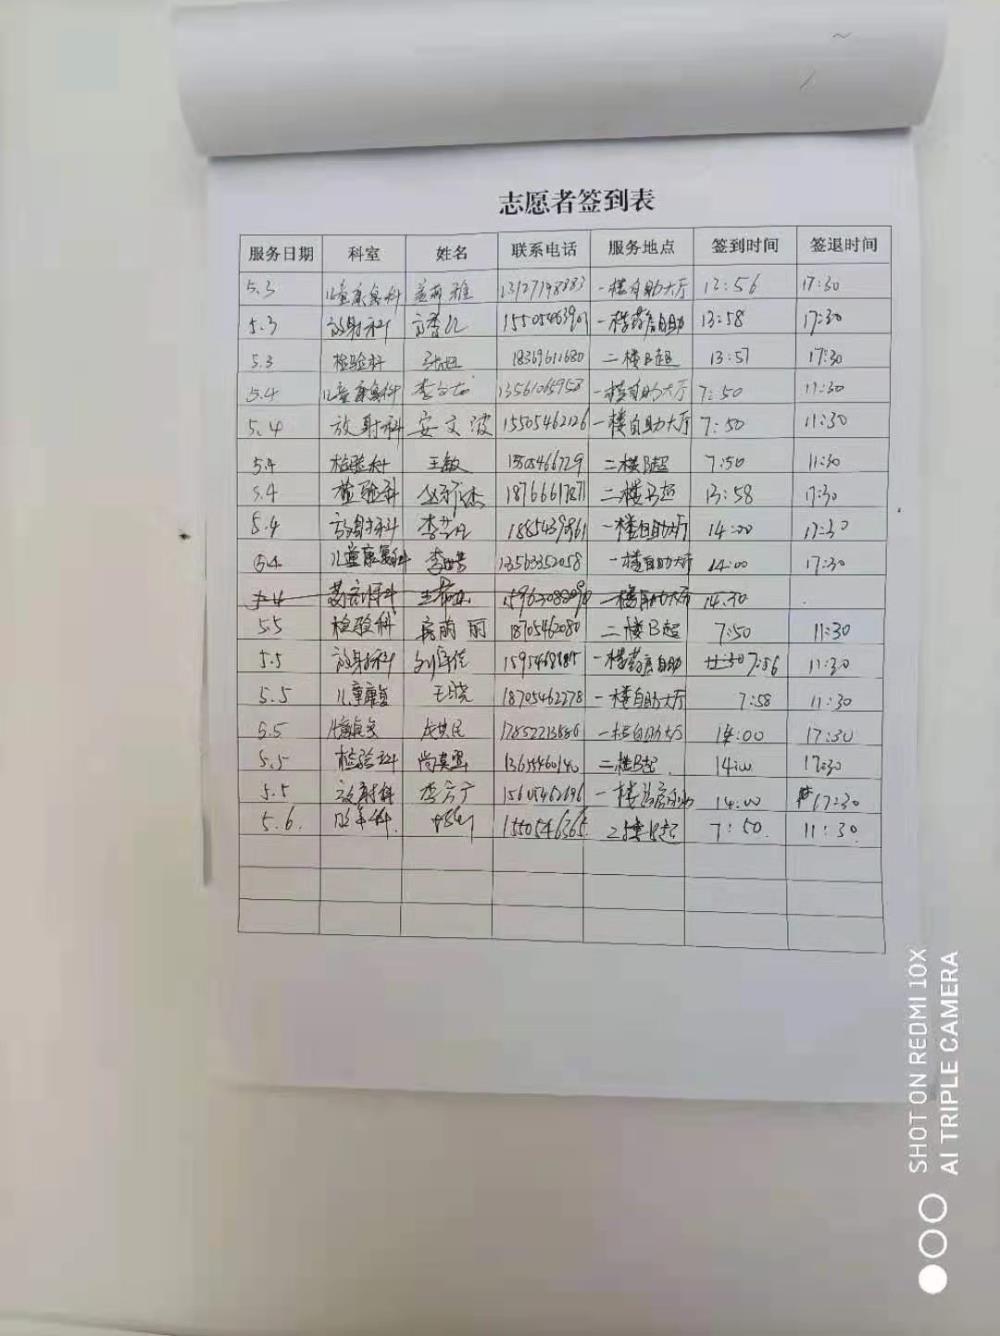 志愿者签到表
服务日期 科室 姓名 联系电话 服务地点 签到时间 签退时间
5.3 儿童康复科 13127198883 一楼自助大厅 13:56 17:30
5.3 放射科 15505463901 一楼药房自助 13:58 17:30
5.3 检验科 18369611680 二楼B超 13:57 17:30
5.4 儿童康复科 李文龙 13561065958 一楼自助大厅 7:50 11:30
5.4 放射科 安文波 15505462126 一楼自助大厅 7:50 11:30
5.4 检验科 王敏 二楼B超 7:50 11:30
5.4 检验科 18766617871 二楼B超 13:58 17:30
5.4 放射科 一楼自助大厅 14:00 17:30
5.4 儿童康复科 13563352058 一楼自助大厅 14:00 17:30
5.4 一楼自助大厅 14.30
5.5 检验科 房萌丽 18705462080 二楼B超 7:50 11:30
5.5 放射科 一楼药房自助 7:56 11:30
5.5 儿童康复 王晓 18705462278 一楼自助大厅 7:58 11:30
5.5 17852213886 一楼自助大厅 14:00 17:30
5.5 检验科 13655460140 二楼B超 14:00 17:30
5.5 放射科 李方广 15605462696 一楼 14:00 17:30
5.6. 1550546365. 二楼B超 7:50. 11:30.
SHOT ON REDMI 10X
AI TRIPLE CAMERA